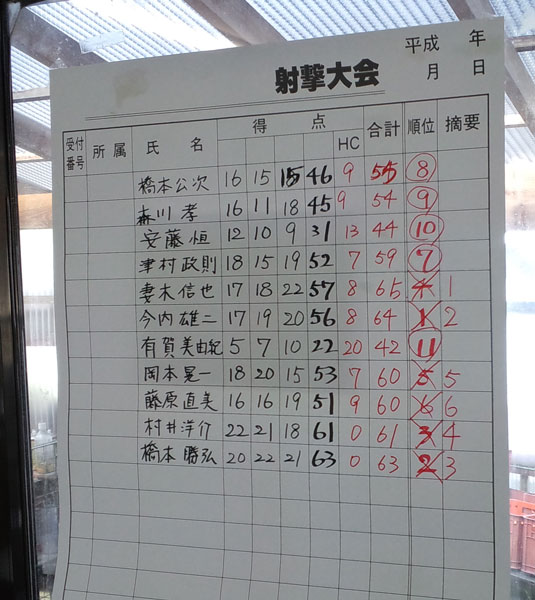 射撃大会
平成 年
月 日
受付番号 所属 氏名 得点 HC 合計 順位 摘要
橋本公次 16 15 15 46 9 55 8
森川孝 16 11 18 45 9 54 9
安藤恒 12 10 9 31 13 44 10
津村政則 18 15 19 52 7 59 7
妻木信也 17 18 22 57 8 65 1
今内雄二 17 19 20 56 8 64 1 2
有賀美由紀 5 7 10 22 20 42 11
岡本晃一 18 20 15 53 7 60 5 5
藤原直美 16 16 19 51 9 60 6 6
村井洋介 22 21 18 61 0 61 3 4
橋本勝弘 20 22 21 63 0 63 2 3